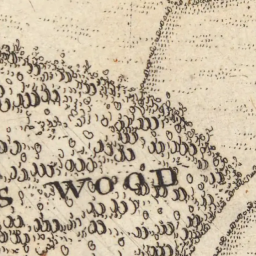 S WOOD